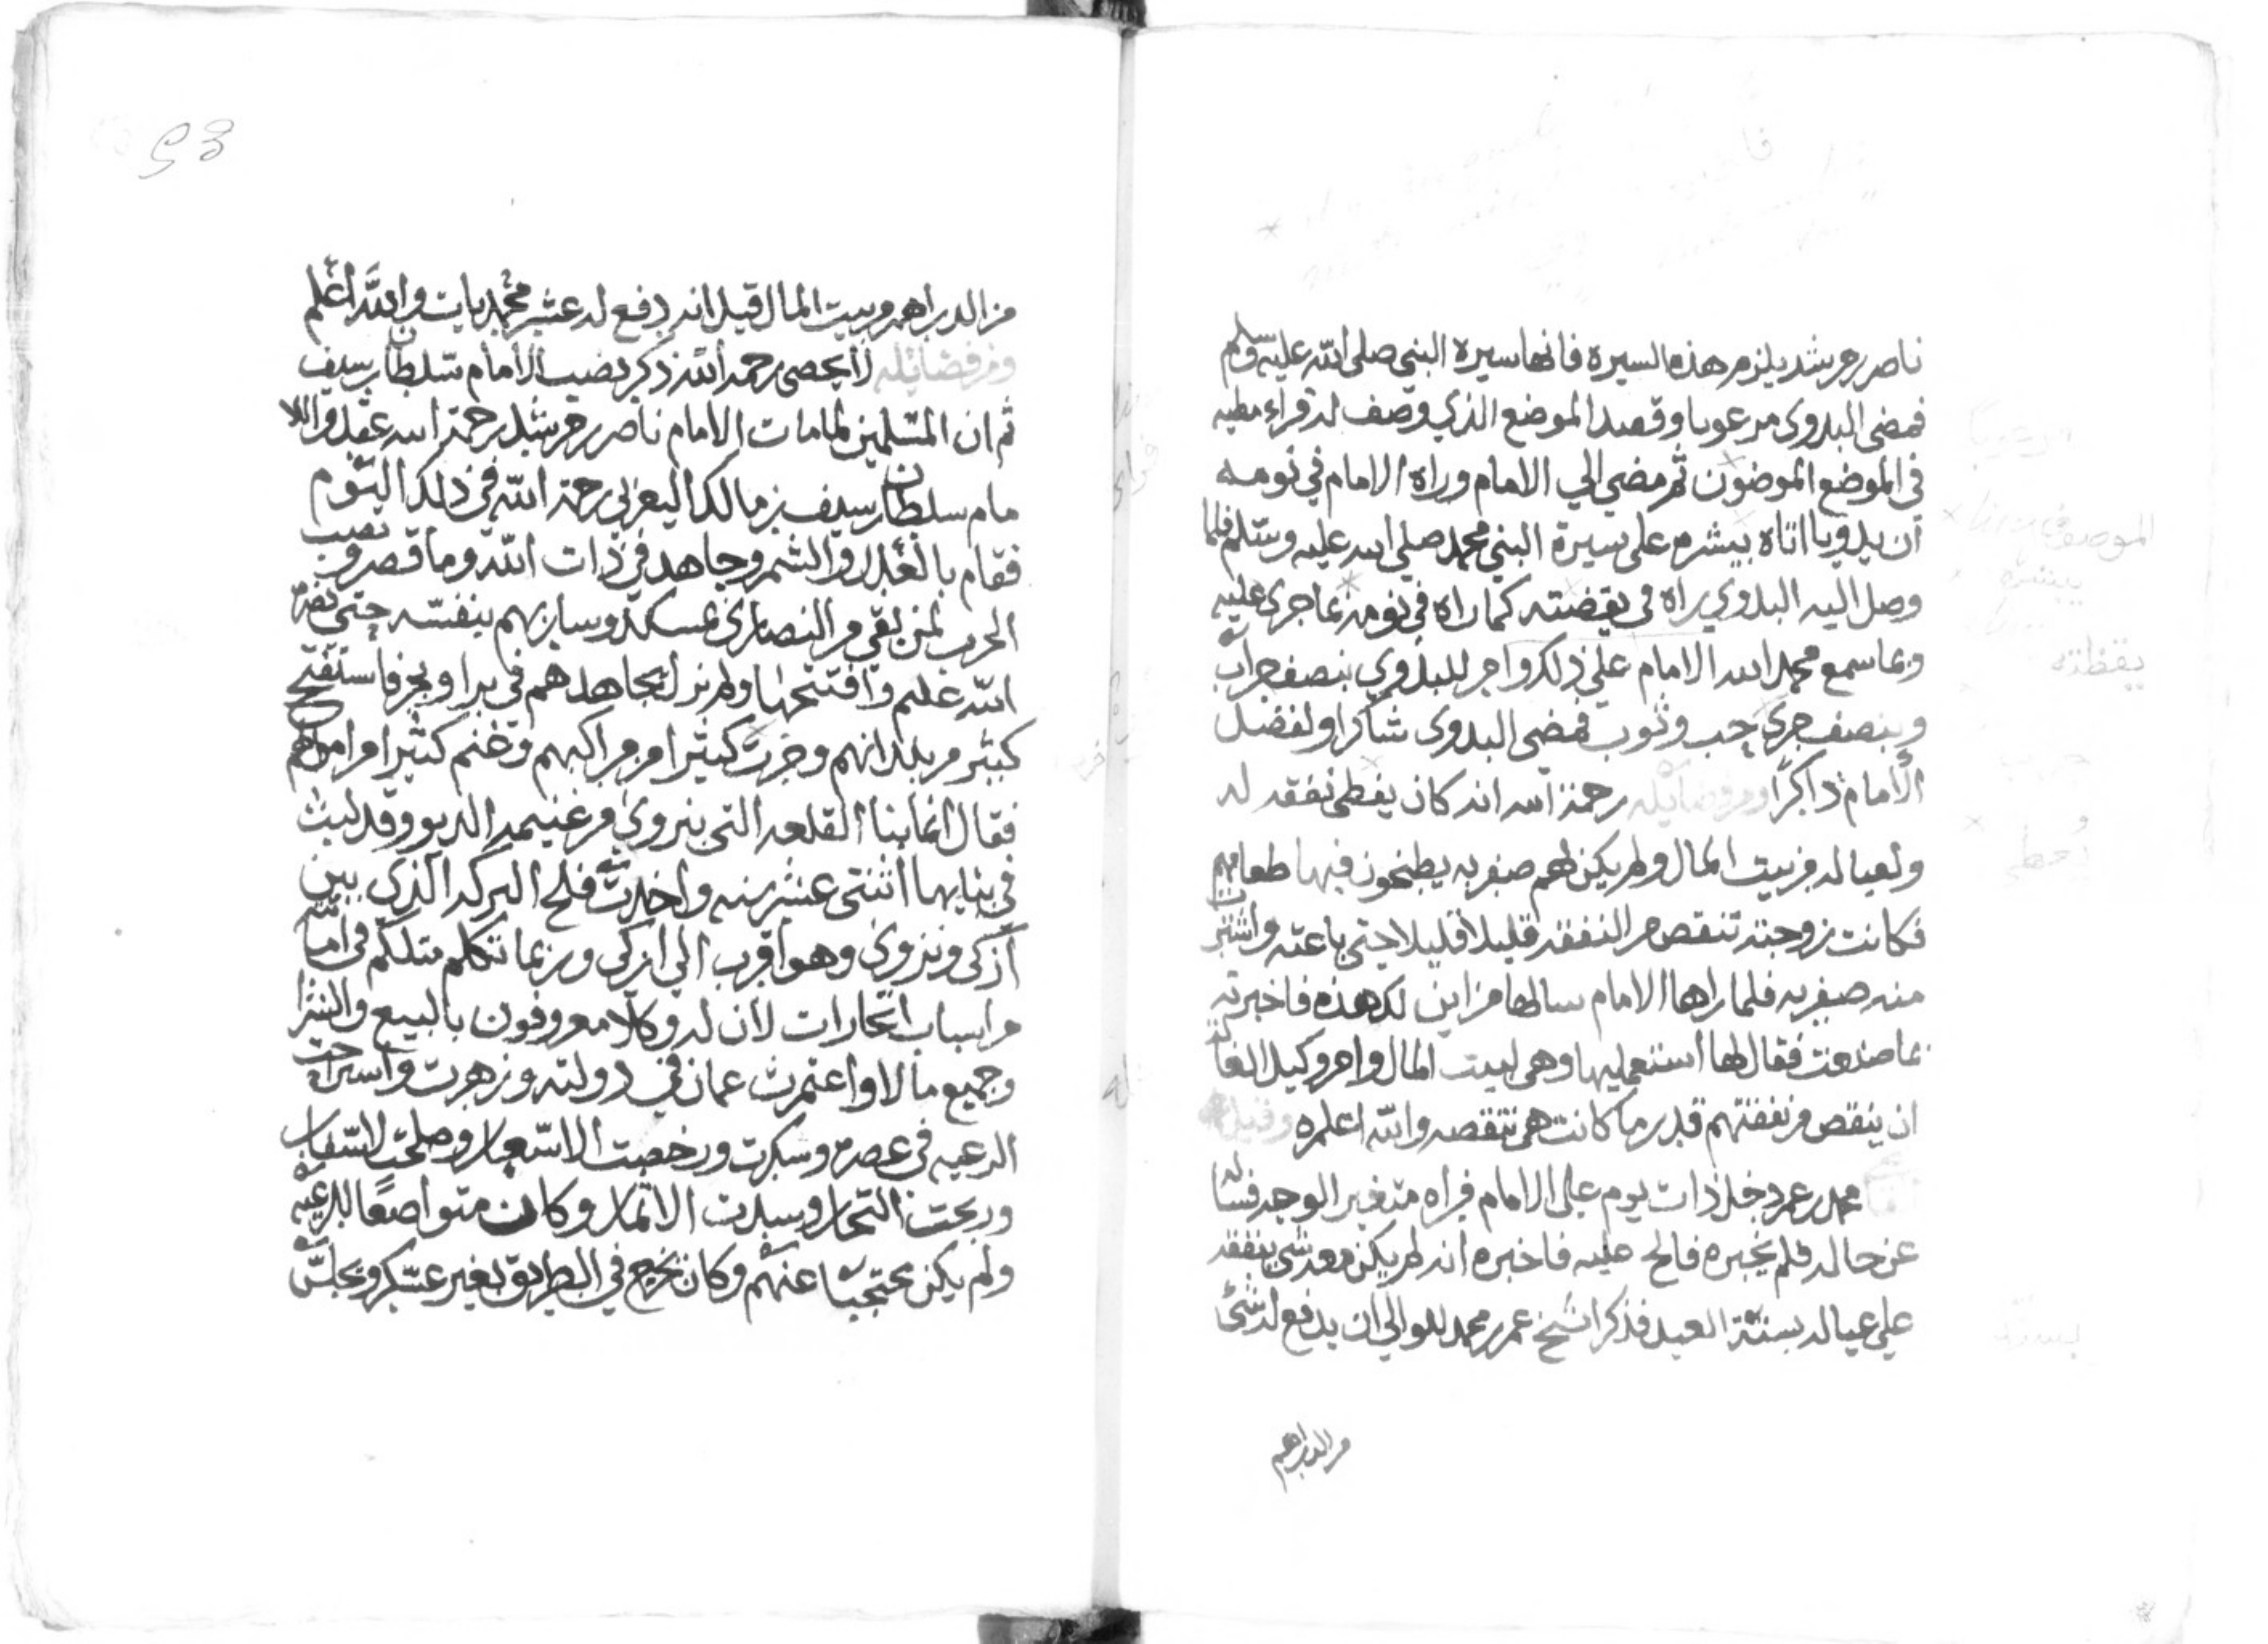 ناصر بن مرشد يلزم هذه السيرة فانها سيرة النبي صلى الله عليه وسلم
فمضى البدوى مرعوبا وقصد الموضع الذي وصف له فراء مطيه
فى الموضع الموضون ثم مضى الي الامام وراه الامام في نومه
ان بدويا اتاه يبشره على سيرة النبي محمد صلى الله عليه وسلم فلما
وصل اليه البدوي يراه في يقضته كما راه في نومه بما جرى عليه
وبما سمع محمد الله الامام على ذلك وامر للبدوي بنصف جراب
وبنصف جرى حب وثوب فمضى البدوى شاكرا ولفضل
الامام ذاكرًا ومن فضايله رحمة الله انه كان يغطى نفقه له
ولعياله من بيت المال ولم يكن لهم صفريه يطبخون فيها طعامهم
فكانت زوجته تنقص من النفقه قليلا قليلا حتى باعته واشترت
منه صفريه فلما راها الامام سالها من اين لك هذه فاخبرته
بما صنعت فقال لها استعمليها وهى لبيت المال وامر وكيل الغا
ان ينقص من نفقتهم قدر ما كانت هى تنقصه والله اعلم وقيل
محمد بن عمر دخل ذات يوم على الامام فراه متغير الوجه فسا
عن حاله فلم يخبره فالح عليه فاخبره انه لم يكن معه شى ينفقه
على عياله بسنة العيد فذكر الشيخ عمر بن محمد للوالي ان يدفع له شئًا
من الدراهم
53
من الدراهم من بيت المال قيل انه دفع له عشر محمديات والله اعلم
ومن فضايله لا تحصى رحمه الله ذكر نصب الامام سلطان بن سيف
ثم ان المسلمين لما مات الامام ناصر بن مرشد رحمة الله عقدوا الا
مام سلطان بن سيف بن مالك اليعربي رحمة الله في ذلك اليوم
فقام بالعدل والشمر وجاهد في ذات الله وما قصر ونصب
الحرب لمن بقى من النصارى بمسكد وسار بهم بنفسه حتى نصره
الله عليهم وافتتحها ولم يزل يجاهدهم فى بر او بحر فاستفتح
كبير من بلدانهم وخرب كثيرا من مراكبهم وغنم كثيرا من اموالهم
فقال انما بنا القلعه التى بنزوى من غنيمة الديو وقد لبث
في بنايها اثنتى عشر سنه واحدث فلج البركه الذي بين
ازكى ونزوى وهو اقرب الي ازكى وربما تكلم متلكم في امامته
من اسباب اتجارات لان له وكلا معروفون بالبيع والشرا
وجمع مالا واعتمرت عمان في دولته وزهرت واستراحت
الرعيه في عصره وشكرت ورخصت الاسعار وصلحت الاسفار
وربحت التجار وسدت الاثمار وكان متواضعا للرعيه
ولم يكن محتجبًا عنهم وكان يخرج في الطريق بغير عسكر ويجلس